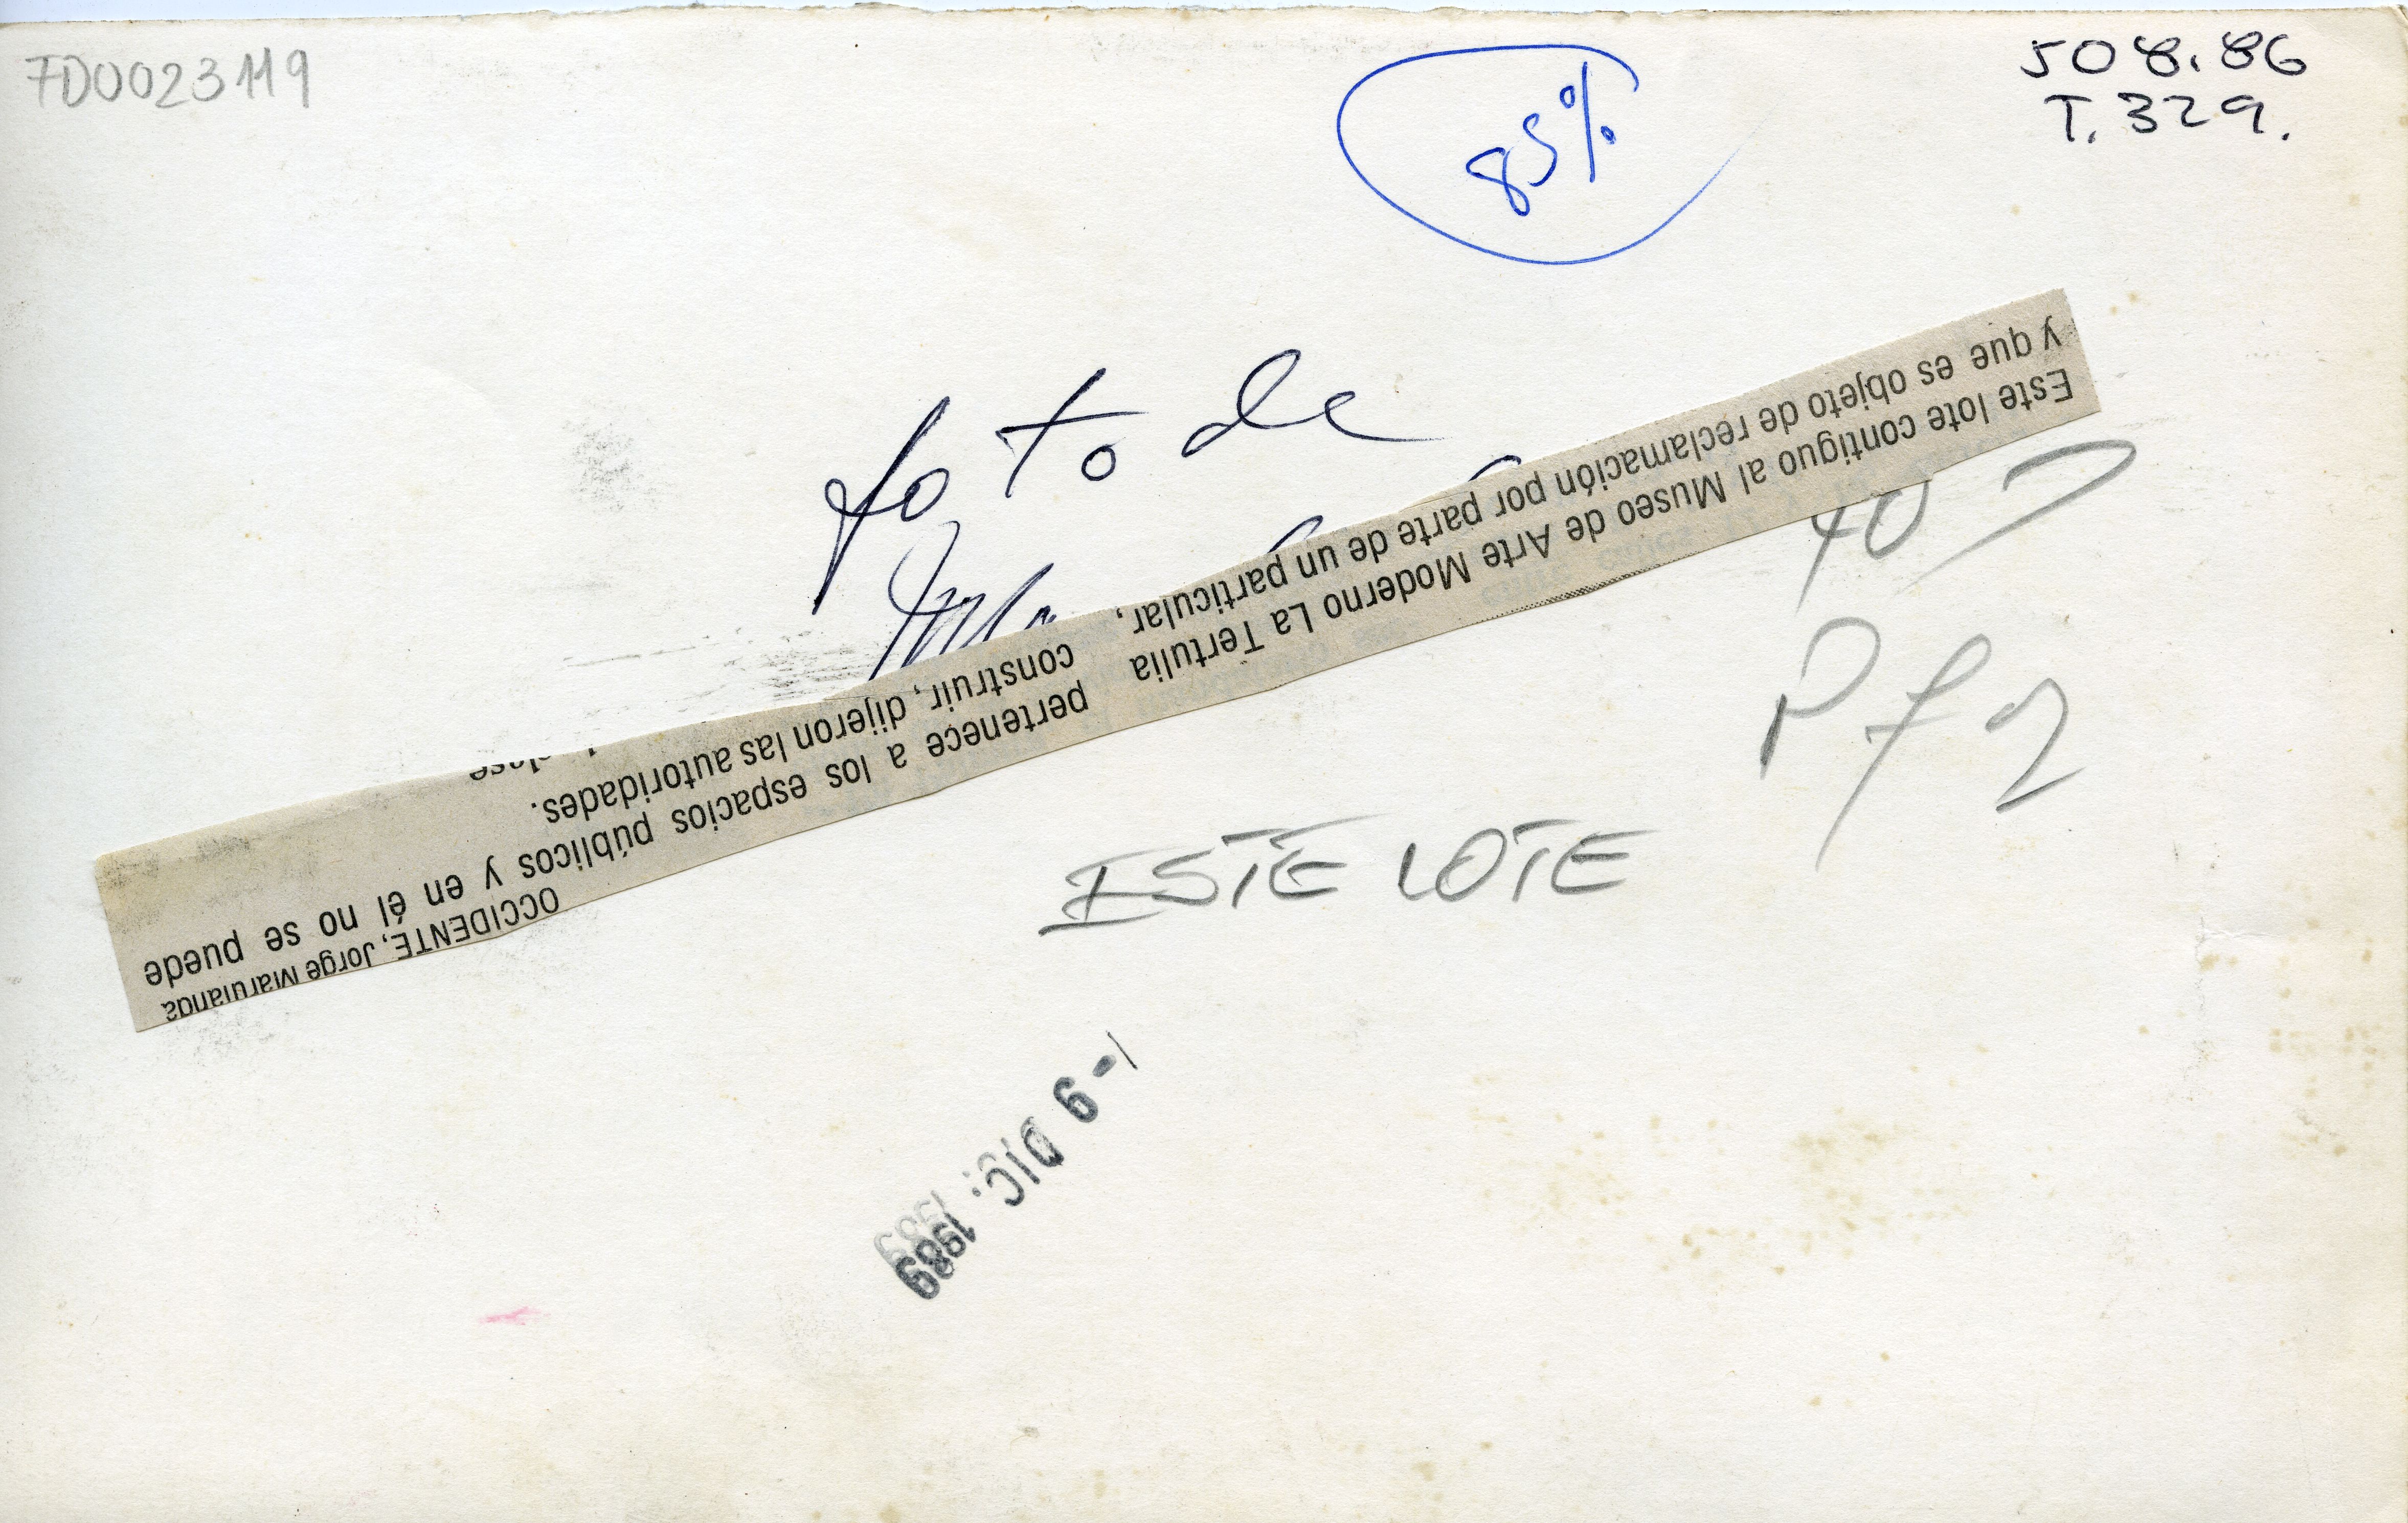 FD0023119
508.86
T.329.
85%
foto de
Este lote contiguo al Museo de Arte Moderno La Tertulia
y que es objeto de reclamación por parte de un particular,
OCCIDENTE, Jorge Marulanda
pertenece a los espacios públicos y en él no se puede
construir, dijeron las autoridades.
40
Pf2
ESTE LOTE
1-9 DIC. 1989